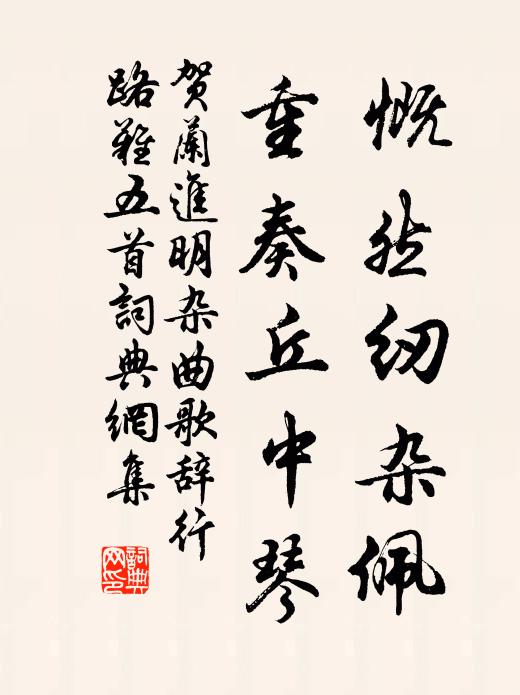 慨然纫杂佩
重奏丘中琴
贺蘭進明杂曲歌辞行
路難五首詞典網集
詞典網印